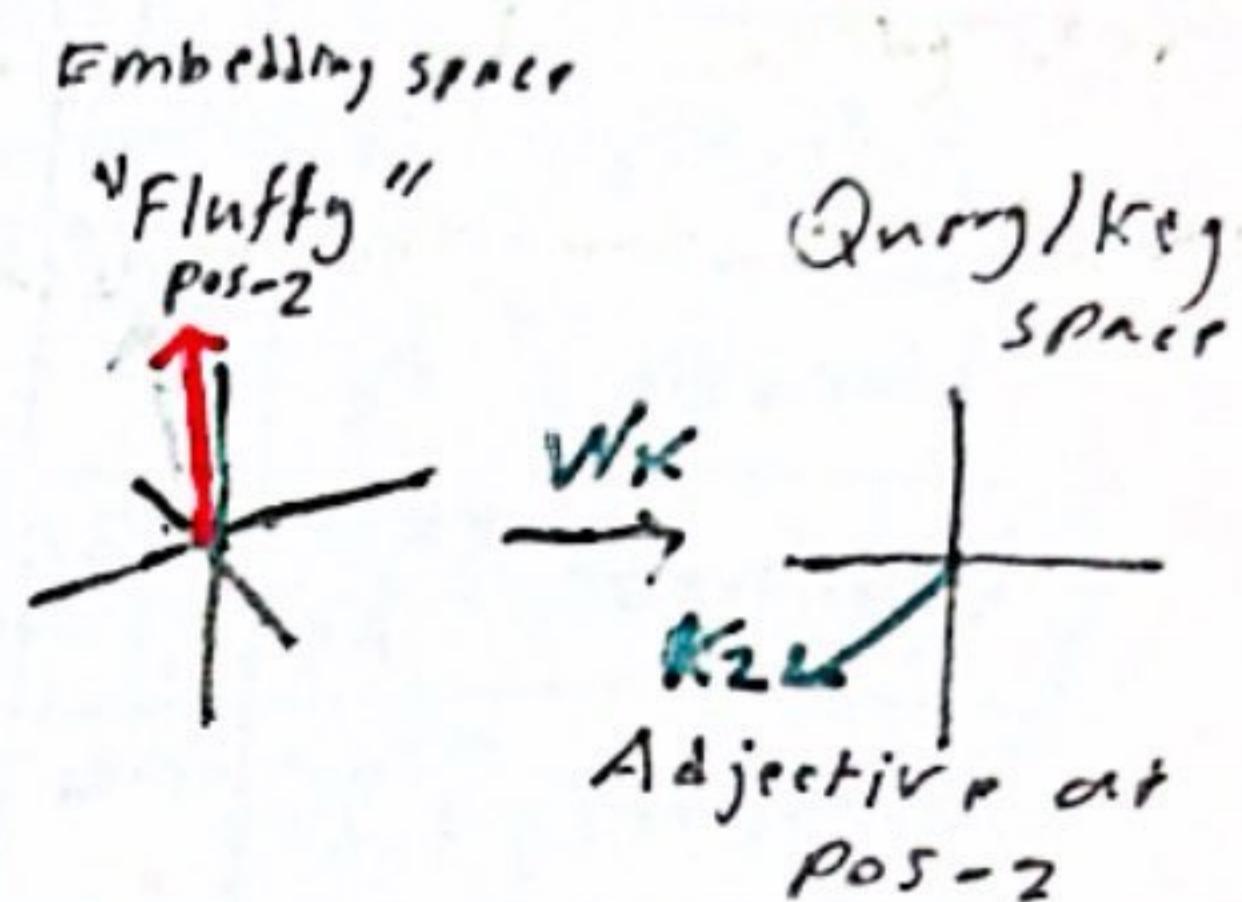 Embedding space
"Fluffy"
pos-2
Query/Key
space
WK
K2
Adjective at
pos-2